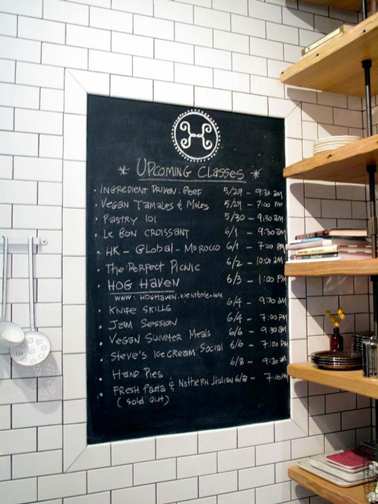 * UPCOMING CLASSES *
• INGREDIENT DRIVEN: BEEF 5/29 - 9:30 AM
• VEGAN TAMALES & MOLES 5/29 - 7:00 PM
• PASTRY 101 5/30 - 9:30 AM
• LE BON CROISSANT 6/1 - 9:30 AM
• HK - GLOBAL - MOROCCO 6/1 - 7:00 PM
• THE PERFECT PICNIC 6/2 - 10:00 AM
• HOG HAVEN 6/3 - 1:00 PM
WWW. HOGHAVEN.
• KNIFE SKILLS 6/4 - 9:30 AM
• JAM SESSION 6/4 - 7:00 PM
• VEGAN SUMMER MEALS 6/6 - 9:30 AM
• STEVE'S ICE CREAM SOCIAL 6/6 - 7:00 PM
• HAND PIES 6/8 - 9:30 AM
• FRESH PASTA & NOTHERN ITALIAN 6/8 - 7:00 PM
(SOLD OUT)